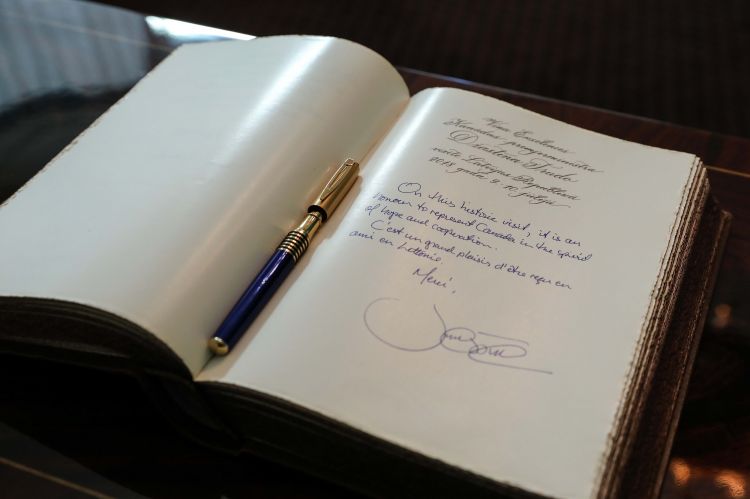 Viņa Ekselences
Kanādas premjerministra
Džastina Trudo
vizīte Latvijas Republikā
2018. gada 9.-10. jūlijā
On this historic visit, it is an
honour to represent Canada in the spirit
of hope and cooperation.
C'est un grand plaisir d'être reçu en
ami en Lettonie.
Merci,